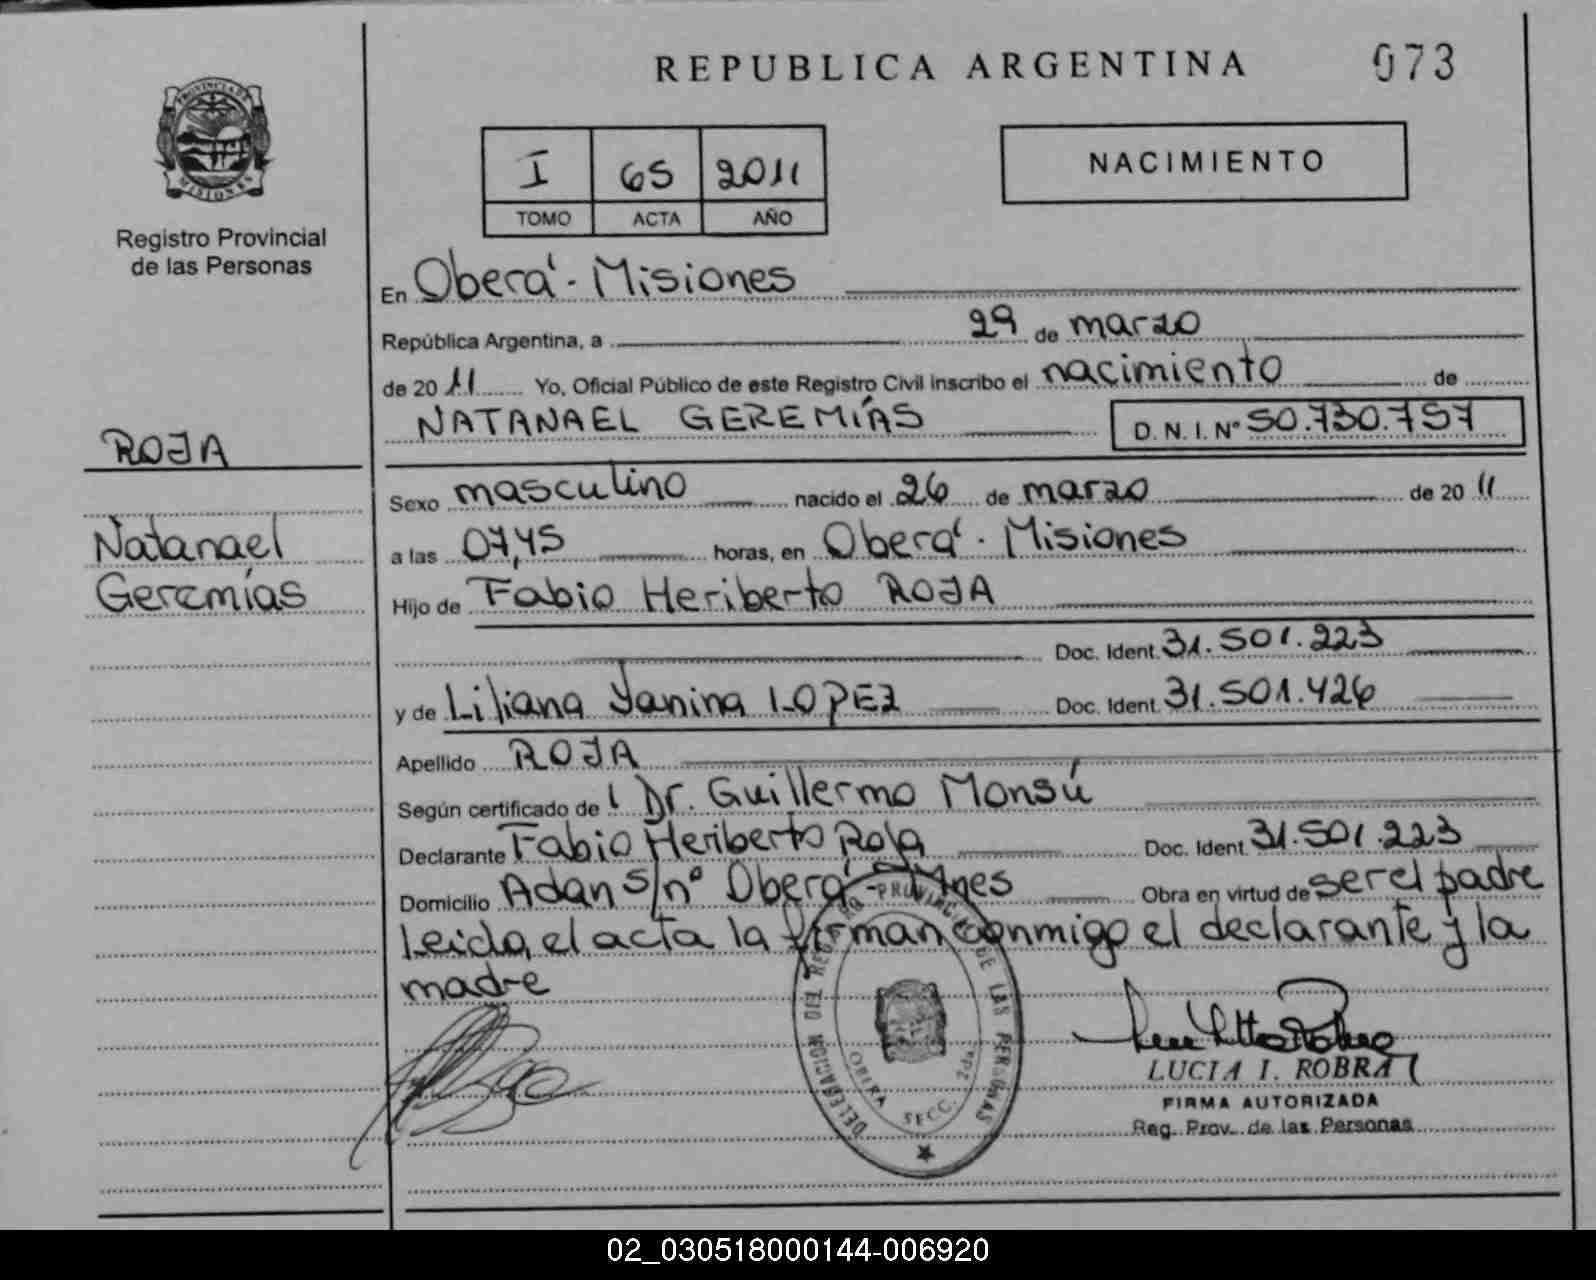 REPUBLICA ARGENTINA
073
PROVINCIA DE
MISIONES
Registro Provincial
de las Personas
I 65 2011
TOMO ACTA AÑO
NACIMIENTO
En Oberá - Misiones
República Argentina, a 29 de marzo
de 2011 Yo, Oficial Público de este Registro Civil inscribo el nacimiento de
NATANAEL GEREMÍAS D. N. I. Nº 50.730.757
ROJA
Natanael
Geremías
Sexo masculino nacido el 26 de marzo de 2011
a las 07,45 horas, en Oberá - Misiones
Hijo de Fabio Heriberto ROJA
Doc. Ident. 31.501.223
y de Liliana Yanina LOPEZ Doc. Ident. 31.501.426
Apellido ROJA
Según certificado de Dr. Guillermo Monsú
Declarante Fabio Heriberto Roja Doc. Ident. 31.501.223
Domicilio Adan s/nº Oberá - Mnes Obra en virtud de ser el padre
Leida el acta la firman conmigo el declarante y la
madre
DELEGACION DEL REGISTRO PROVINCIAL DE LAS PERSONAS
OBERA SECC. 2da.
LUCIA I. ROBRA
FIRMA AUTORIZADA
Reg. Prov. de las Personas
02_030518000144-006920